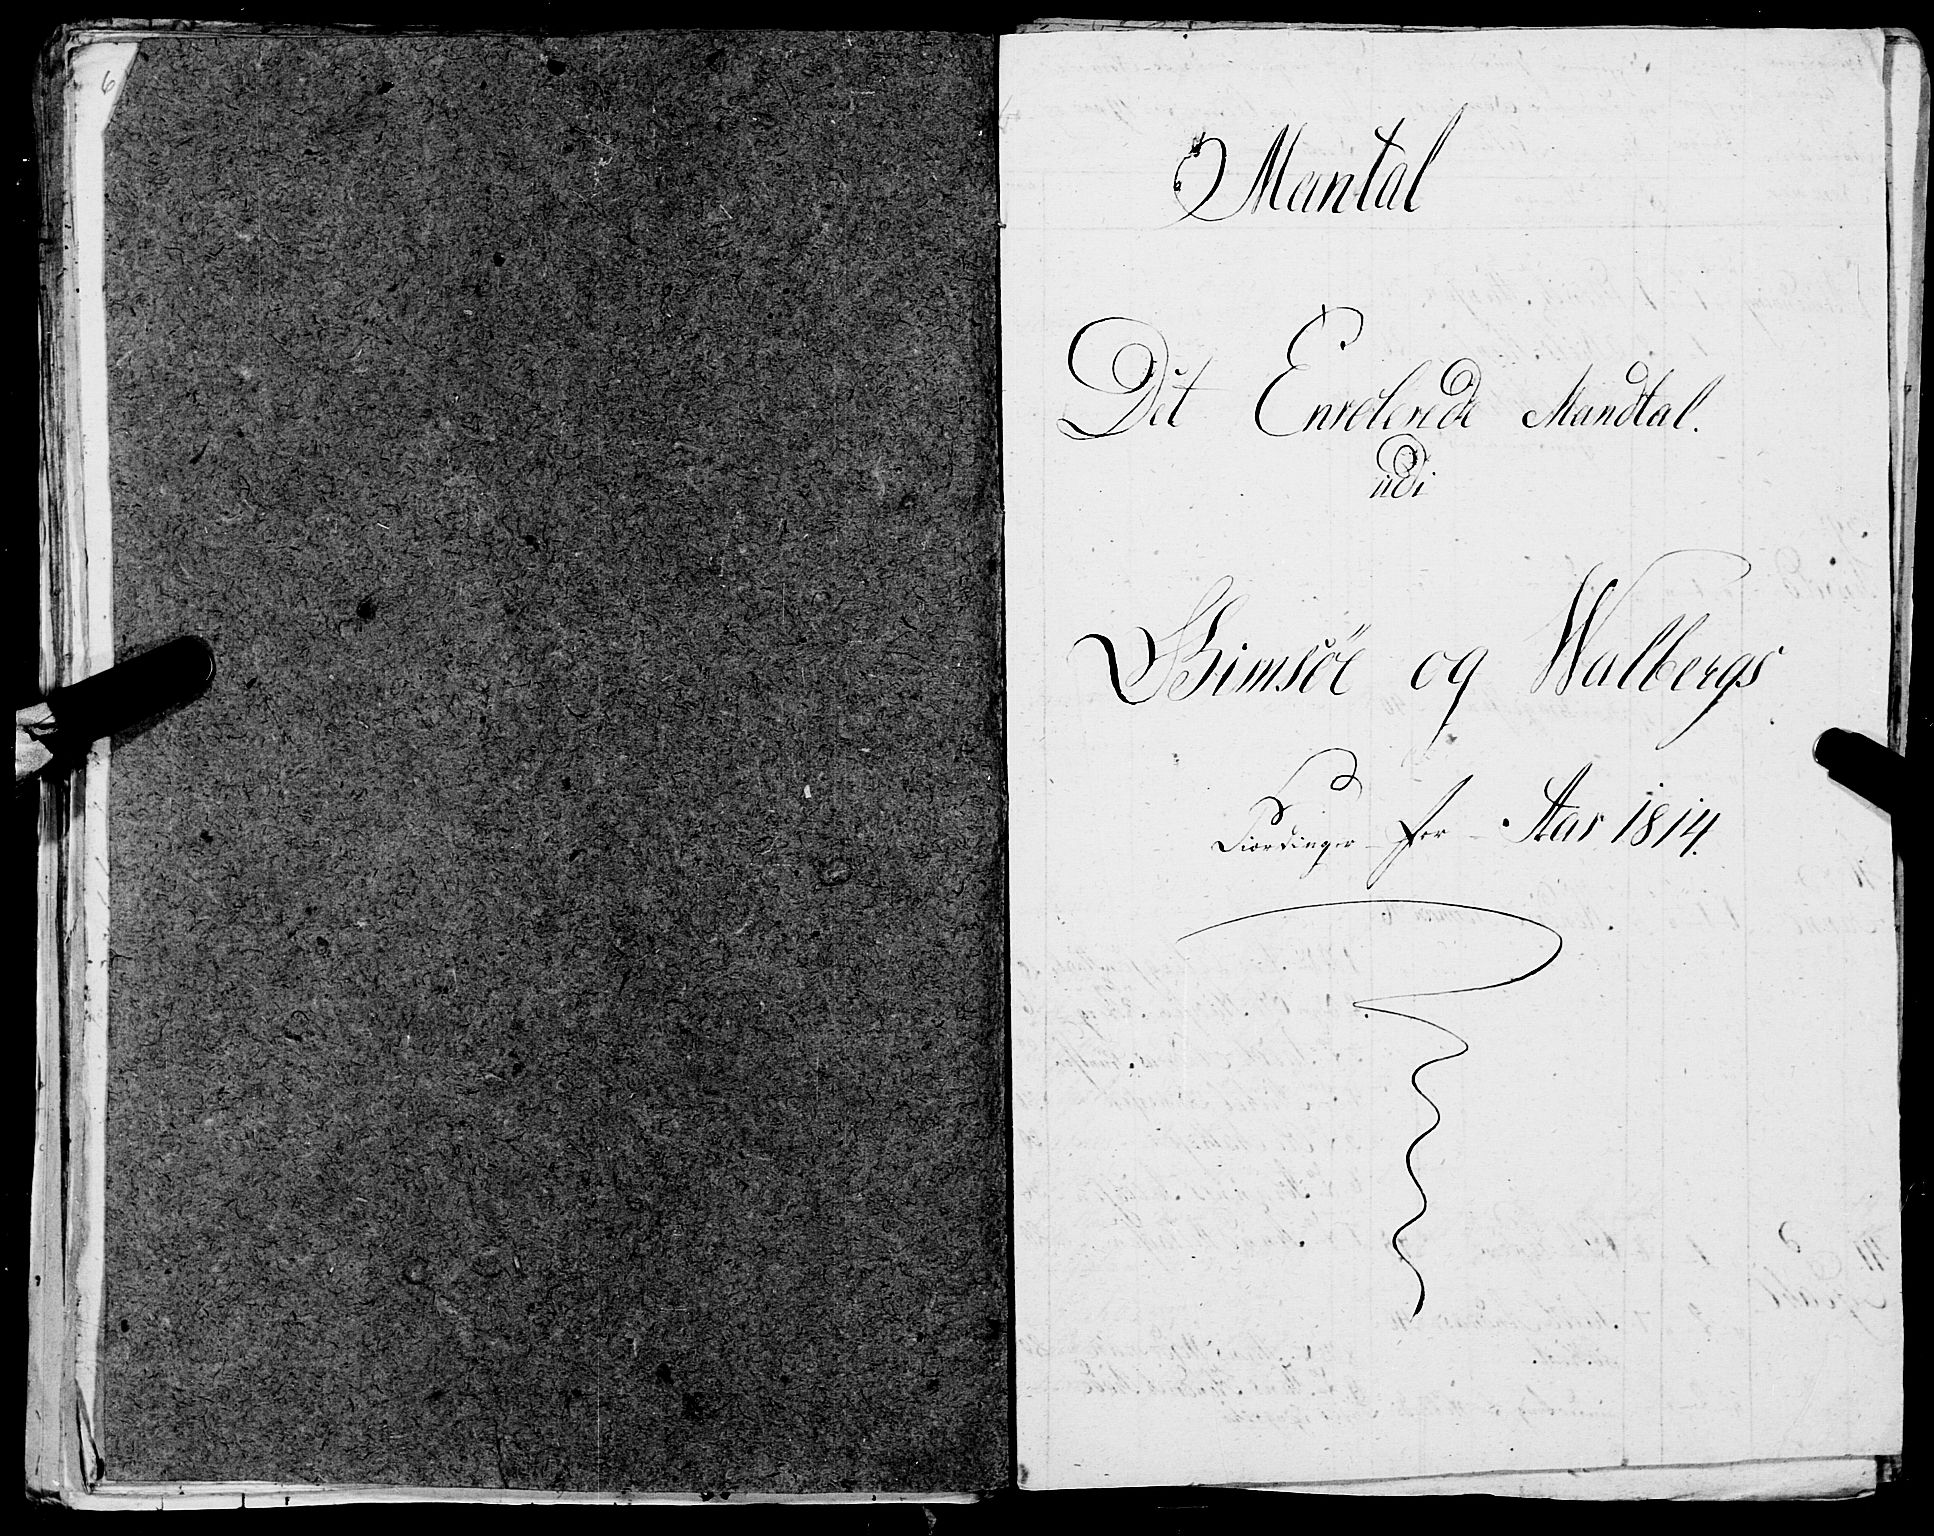 6
Mantal
Det Enrelerede Mandtal.
udi
Gimsöe og Walbergs
Fiordinger for Aar 1814.